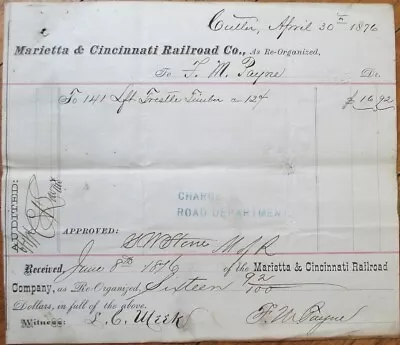 Cutler, April 30th 1876
Marietta & Cincinnati Railroad Co., As Re-Organized,
To F. M. Payne Dr.
To 141 Lft Trestle Timber a 12¢ $16 92
AUDITED:
CHARGE
ROAD DEPARTMENT.
APPROVED:
M of R
Received, June 8th 1876 of the Marietta & Cincinnati Railroad
Company, as Re-Organized, Sixteen 92/100
Dollars, in full of the above.
Witness: L. C. Week F. M. Payne